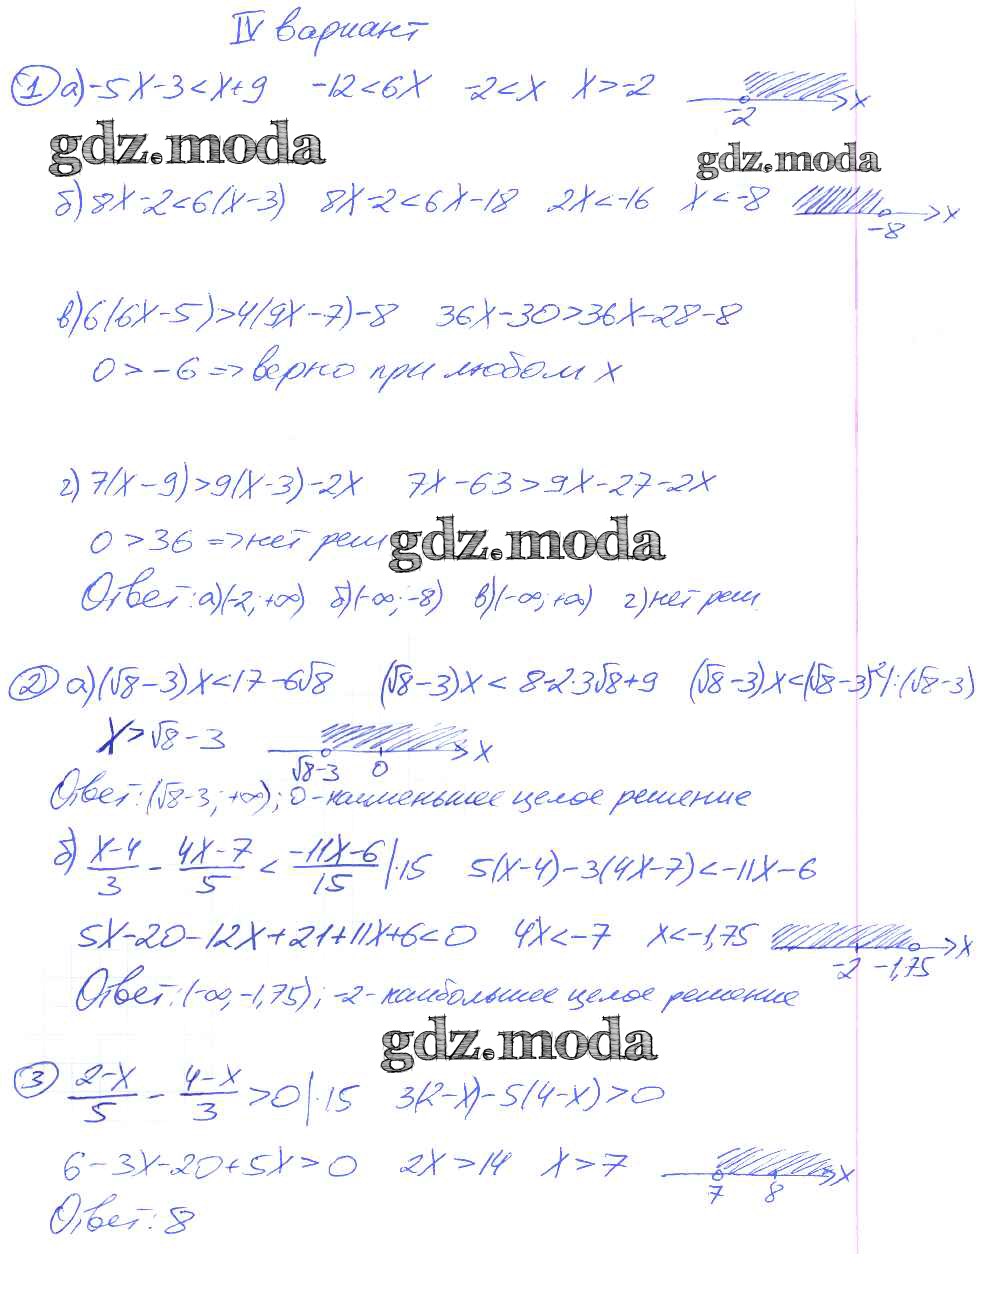 IV вариант
1 а) -5x-3<x+9 -12<6x -2<x x>-2 -2 x
gdz.moda
gdz.moda
б) 8x-2<6(x-3) 8x-2<6x-18 2x<-16 x<-8 -8 x
в) 6(6x-5)>4(9x-7)-8 36x-30>36x-28-8
0>-6 => верно при любом x
г) 7(x-9)>9(x-3)-2x 7x-63>9x-27-2x
0>36 => нет реш
gdz.moda
Ответ: а)(-2; +∞) б)(-∞; -8) в)(-∞; +∞) г) нет реш
2 а) (√8-3)x<17-6√8 (√8-3)x<8-2·3√8+9 (√8-3)x<(√8-3)²|:(√8-3)
x>√8-3 √8-3 0 x
Ответ: (√8-3; +∞); 0-наименьшее целое решение
б) (x-4)/3 - (4x-7)/5 < (-11x-6)/15 |·15 5(x-4)-3(4x-7)<-11x-6
5x-20-12x+21+11x+6<0 4x<-7 x<-1,75 -2 -1,75 x
Ответ: (-∞, -1,75); -2-наибольшее целое решение
gdz.moda
3 (2-x)/5 - (4-x)/3 >0 |·15 3(2-x)-5(4-x)>0
6-3x-20+5x>0 2x>14 x>7 7 8 x
Ответ: 8